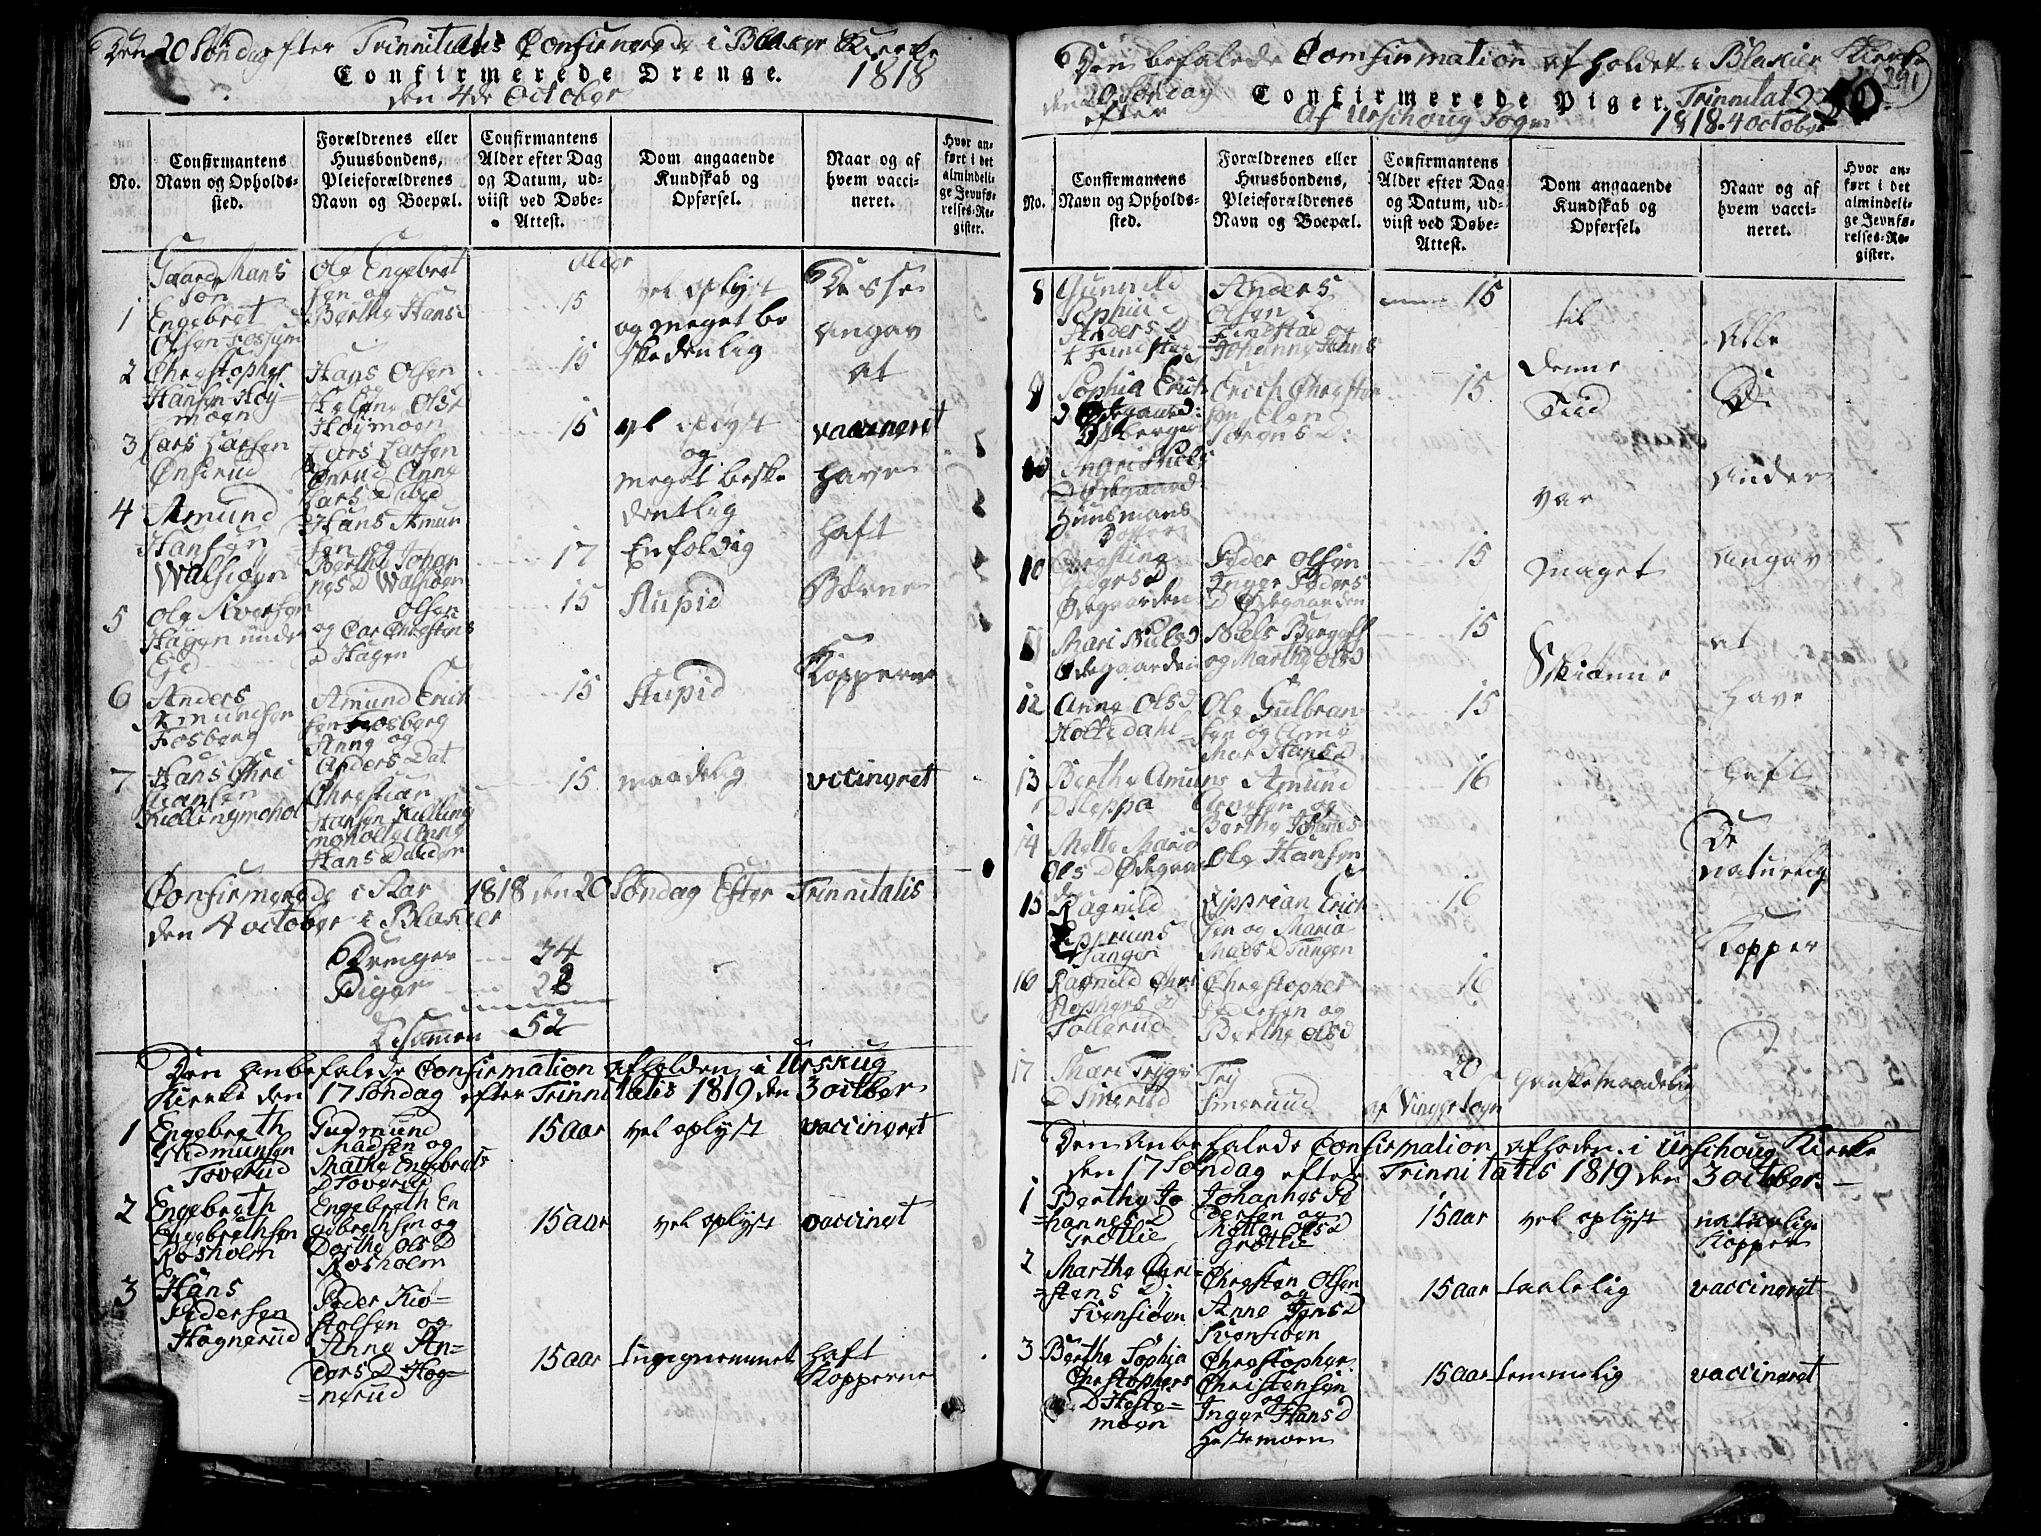 Den 20 Søndag efter Trinnitatis Confirmerede i Blaker Kierke
Confirmerede Drenge.
1818
den 4de October
No.
Confirmantens
Navn og Opholds-
sted.
Forældrenes eller
Huusbondens,
Pleieforældrenes
Navn og Boepæl.
Confirmantens
Alder efter Dag
og Datum, ud-
viist ved Døbe-
Attest.
Dom angaaende
Kundskab og
Opførsel.
Naar og af
hvem vacci-
neret.
Hvor an-
ført i det
almindeli-
ge Jevnfø-
relses-Re-
gister.
Gaard Mans
Søn
1 Engebret
Olsen Fossum
Ole Engebret
sen og
Berthe Hans D
Alder
15
vel oplyst
og meget be
skedenlig
Disse
angav
at
2 Christopher
Hansen Høj-
moen
Hans Olsen
Helene Ols D
Højmoen
15
3 Lars Larsen
Ønserud
Lars Larsen
Ønrud Anne
Lars D ibid
15
vel oplyst
og
meget beske
dentlig
vaccineret
have
4 Amund
Hansen
Walsiøen
Hans Amun
sen og
Berthe Johan
nes D Walsiøen
17
Enfoldig
haft
5 Ole Iversen
Hagen under
Eid
Olsen
og Car Christens
D Hagen
15
Stupid
Børne
6 Anders
Amundsen
Fosberg
Amund Erich
sen Fosberg
Anne og
Anders Dat
15
Stupid
Kopperne
7 Hans Chri
stiansen
Killingmohol
Christian
Hansen Killing
moholte Anne
Hans Datter
15
maadelig
vccineret
Confirmerede i Aar 1818 den 20 Søndag Efter Trinnitatis
den 4 october i Blakier
Drenger 24
Piger 28
Tilsamen 52
Den Anbefalede Confirmation afholden i Urskug
Kierke den 17 Søndag efter Trinnitatis 1819 den 3 octber
1 Engebreth
Gudmunsen
Toverud
Gudmund
Madsen og
Mathe Engebrets
D Toverud
15 aar
vel oplyst
vaccineret
2 Engebreth
Engebrethsen
Rosholm
Engebreth En
gebrethsen og
Dorthe Ols D
Rosholm
15 aar
vel oplyst
vaccineret
3 Hans
Pedersen
Hognerud
Peder Kio-
stolsen og
Anne An-
ders D Hog-
=nerud
15 aar
haft
Kopperne
Den befalede Comfirmation af holdet i Blakier Kierke
den 20 Søndag
efter
Confirmerede Piger.
Trinnitat
Af Urschoug Sogn
1818. 4 october
50
291
No.
Confirmantens
Navn og Opholds-
sted.
Forældrenes eller
Huusbondens,
Pleieforældrenes
Navn og Boepæl.
Confirmantens
Alder efter Dag
og Datum, ud-
viist ved Døbe-
Attest.
Dom angaaende
Kundskab og
Opførsel.
Naar og af
hvem vacci-
neret.
Hvor an-
ført i det
almindeli-
ge Jevnfø-
relses-Re-
gister.
8 Gunnild
Sophie
Anders D
Findstad
Anders
Olsen
Findstad og
Johanne Hans
15
til
Alle
9 Sophia Erich
D Ødegaard
Erich Christo
sen Elen
Jørgens D:
15
denne
Tiid
Di
10 Ingri Niels
D Ødegaard
Huusmans
Datter
var
Ander
10 Kirsting
Peders D
Ødegaarden
Peder Olsen
Inger Peders
D Ødegaarden
15
maget
Angav
11 Mari Niels D
Ødegaarden
Niels
og Marthe Ols D
15
Skiønne
at
12 Anne Ols D
Holtedahl
Ole Gulbran-
sen og
Mar Hans D
15
have
13 Berthe Amuns
D Heppa
Amund
Arnesen og
Berthe Johanes
16
haft
14 Mette Marie
Ols D Ødegaar
den
Ole Hansen
De
naturlig
15 Ragnild
Zipprians
Tangen
Zipprian Erich
sen og Maria
Mads D Tangen
16
Kopper
16 Ragnild Chri
stophers D
Tollerud
Christopher
Pedersen og
Berthe Ols D
16
17 Mari Trygs
D Smerud
Try
Smeruud
20
af Vinger Sogn
Ganske maadelig
Den Anbefalede Confirmation afholden i Urschoug Kierke
den 17 Søndag efter Trinnitatis 1819 den 3 octber. —
1 Berthe Jo
=hannes D
Grøtlie
Johannes Pe
dersen og
Mette Ols D
Grøtlie
15 aar
vel oplyst
naturlige
Kopper
2 Marthe Chri-
=stens D
Svensiøen
Christen Olsen
og
Anne Jens D
Svensiøen
15 aar
taalelig
vaccineret
3 Berthe Sophia
Christophers
D Heste-
moen
Christopher
Christensen
og
Inger Hans D
Hestemoen
15 aar
temmelig
vaccineret